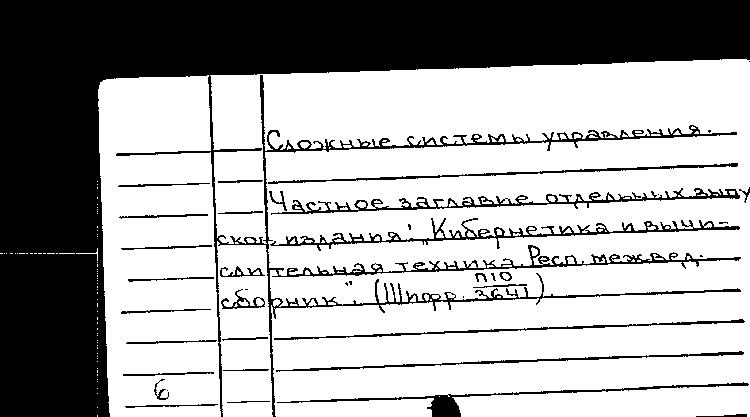 Сложные системы управления.
Частное заглавие отдельных выпу
сков издания: „Кибернетика и вычи-
слительная техника. Респ. межвед.
сборник". (Шифр П10/3641).
6